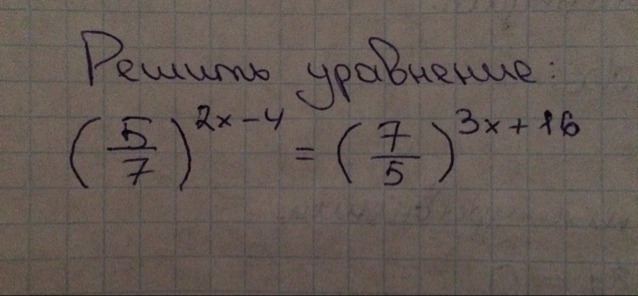 Решить уравнение:
(5/7)^{2x-4} = (7/5)^{3x+16}